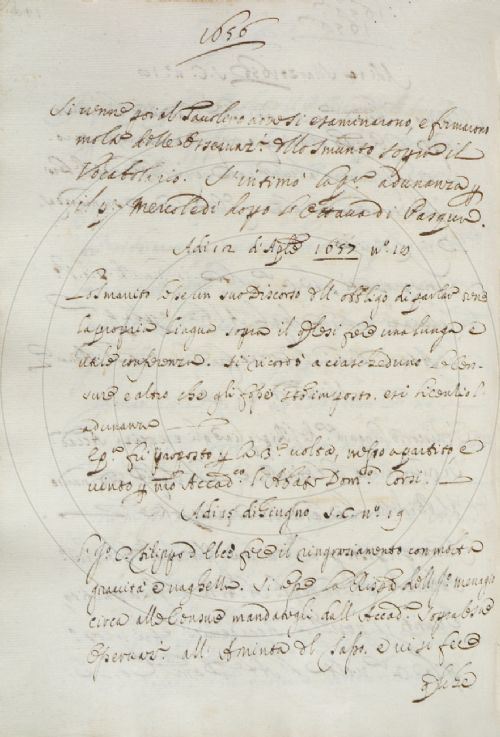 1656
Si venne poi al Tavolero dove si esaminarono, e firmarono
molte delle Osservaz.i dello Smunto sopra il
Vocabolario. S'intimò la pr.a adunanza p
il p.o Mercoledì dopo l'Ottava di Pasqua.
Adi 12 d'Aple 1657 n.o 19
Lo Smarrito lesse un suo Discorso dell'obbligo di parlar bene
la propria lingua sopra il quale si fece una lunga e
utile conferenza. Si ricordò a ciascheduno le Cen-
sure e altro che gli fosse stato imposto. e si licenziò l'
adunanza
E p.a fu proposto p la 3.a volta, messo a partito e
vinto p n.ro Accad.co l'Abate Dom.co Corsi.
Adi 15 di Giugno S. C. n.o 19
Il S.r C. Filippo d'Elci fece il ringraziamento con molta
gravità e vaghezza. Si lesse la Risp.a del S.r Menagio
circa alle Censure mandategli dall'Accad.a sopra le sue
Osservaz.i all'Aminta del Tasso. e vi si fece